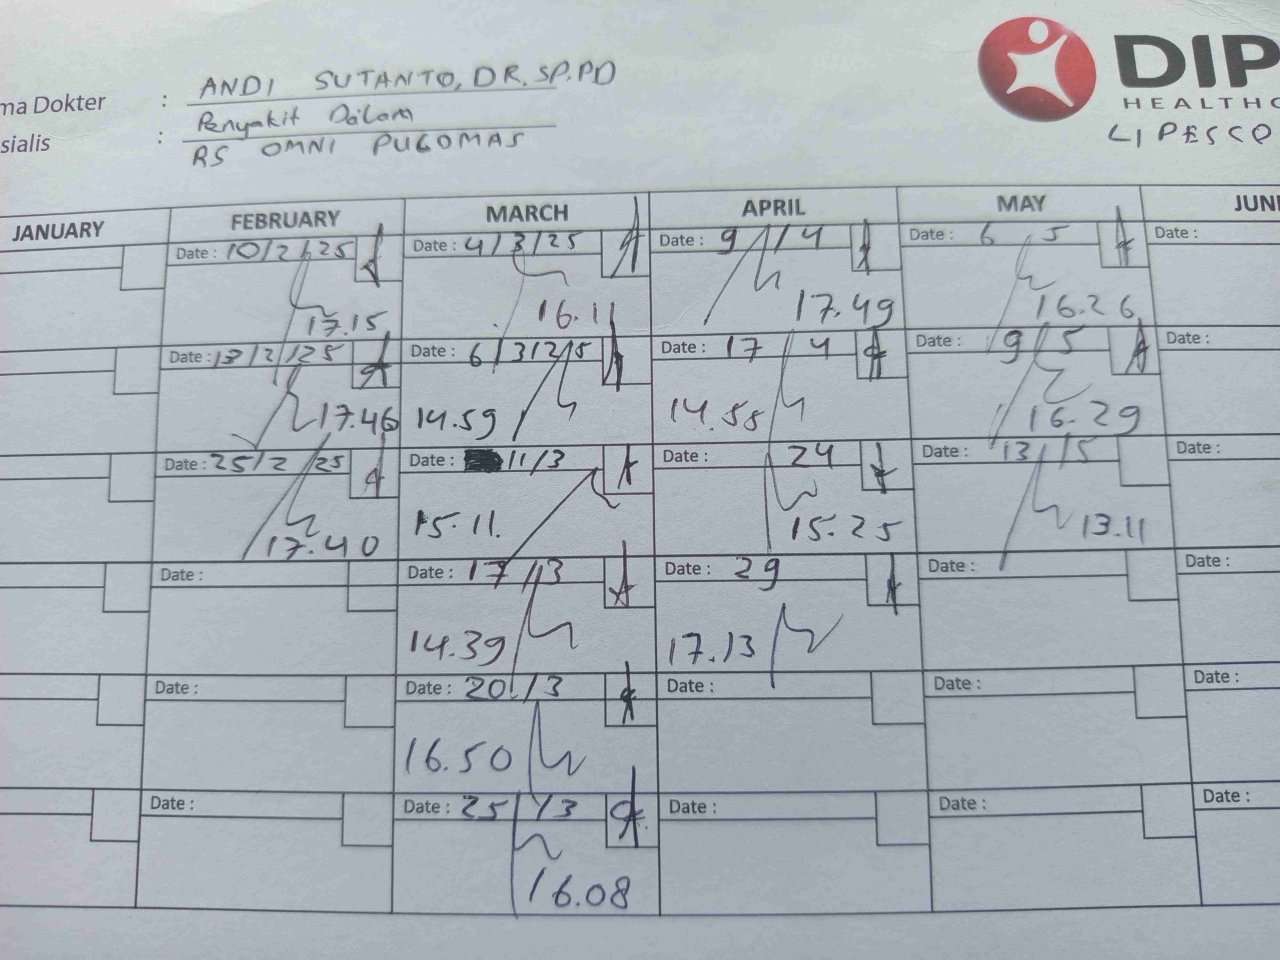 ma Dokter : ANDI SUTANTO, DR. SP.PD
sialis : Penyakit Dalam
RS OMNI PULOMAS
DIP
HEALTHC
LIPESCO
JANUARY FEBRUARY MARCH APRIL MAY JUNE
Date : 10/2/25 Date : 4/3/25 Date : 9/4 Date : 6 5 Date :
17.15 16.11 17.49 16.26
Date : 18/2/25 Date : 6/3/25 Date : 17 4 Date : 9/5 Date :
17.46 14.59 14.58 16.29
Date : 25/2/25 Date : 11/3 Date : 24 Date : 13/5 Date :
17.40 15.11. 15.25 13.11
Date : Date : 17/3 Date : 29 Date : Date :
14.39 17.13
Date : Date : 20/3 Date : Date : Date :
16.50
Date : Date : 25/3 Date : Date : Date :
16.08